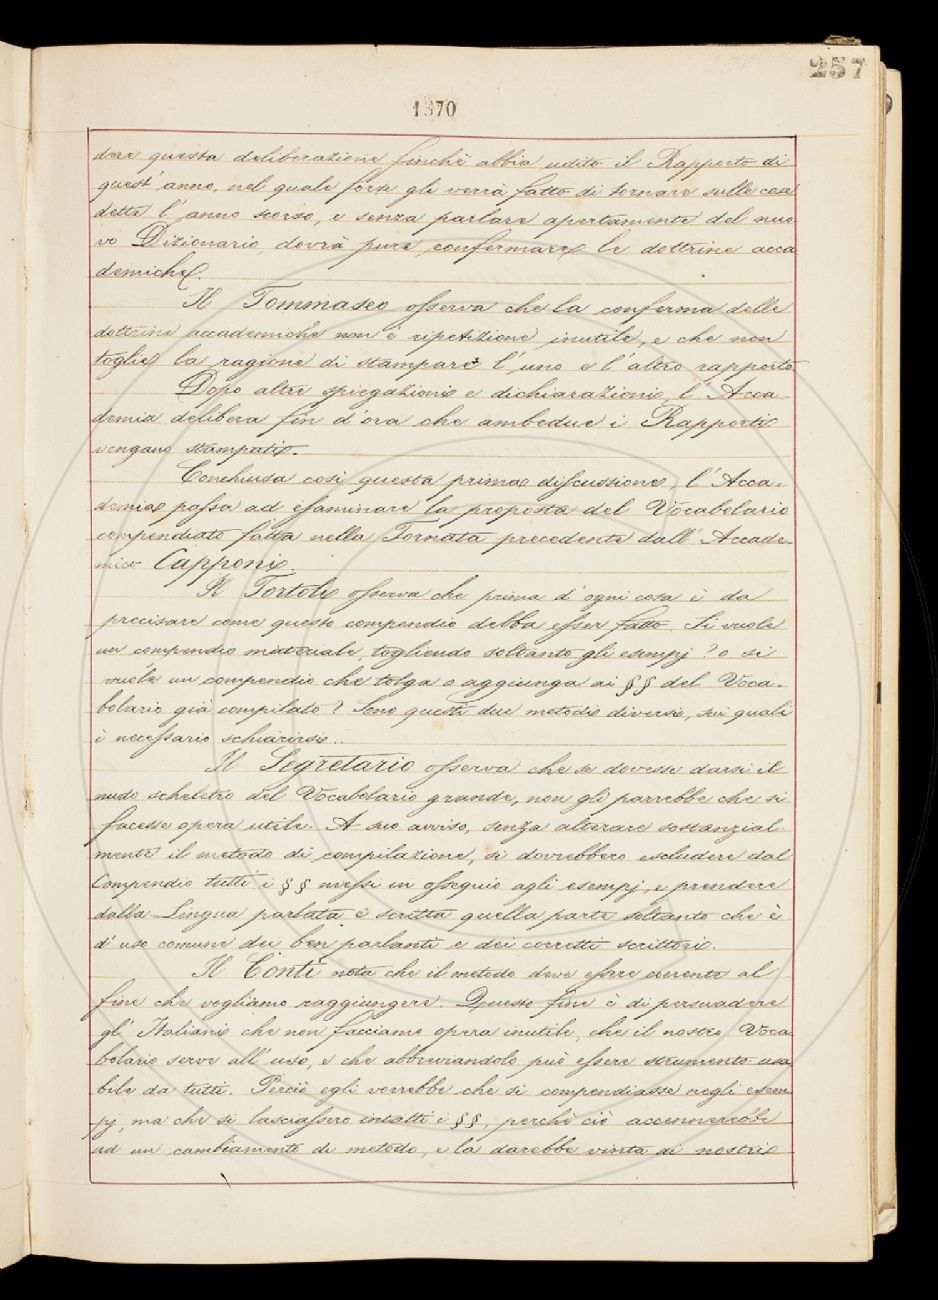 257
1870
dere questa deliberazione finchè abbia udito il Rapporto di
quest'anno, nel quale forse gli verrà fatto di tornare sulle cose
dette l'anno scorso, e senza parlare apertamente del nuo
vo Dizionario, dovrà pure confermare le dottrine acca
demiche.
Il Tommaseo osserva che la conferma delle
dottrine accademiche non è ripetizione inutile, e che non
toglie la ragione di stampare l'uno e l'altro rapporto.
Dopo altre spiegazioni e dichiarazioni, l'Acca-
demia delibera fin d'ora che ambedue i Rapporti
vengano stampati.
Conchiusa così questa prima discussione, l'Acca-
demia passa ad esaminare la proposta del Vocabolario
compendiato fatta nella Tornata precedente dall'Accade-
mico Capponi.
Il Tortoli osserva che prima d'ogni cosa è da
precisare come questo compendio debba esser fatto. Si vuole
un compendio materiale, togliendo soltanto gli esempj? o si
vuole un compendio che tolga o aggiunga ai §§ del Voca-
bolario già compilato? Sono questi due metodi diversi, sui quali
è necessario schiarirsi..
Il Segretario osserva che se dovesse darsi il
nudo scheletro del Vocabolario grande, non gli parrebbe che si
facesse opera utile. A suo avviso, senza alterare sostanzial-
mente il metodo di compilazione, si dovrebbero escludere dal
Compendio tutti i §§ messi in ossequio agli esempj, e prendere
dalla Lingua parlata e scritta quella parte soltanto che è
d'uso comune dei ben parlanti e dei corretti scrittori.
Il Conti nota che il metodo deve essere coerente al
fine che vogliamo raggiungere. Questo fine è di persuadere
gl'Italiani che non facciamo opera inutile, che il nostro Voca
bolario serve all'uso, e che abbreviandolo può essere strumento usa
bile da tutti. Perciò egli vorrebbe che si compendiasse negli esem
pj, ma che si lasciassero intatti i §§, perchè ciò accennerebbe
ad un cambiamento di metodo, e la darebbe vinta ai nostri